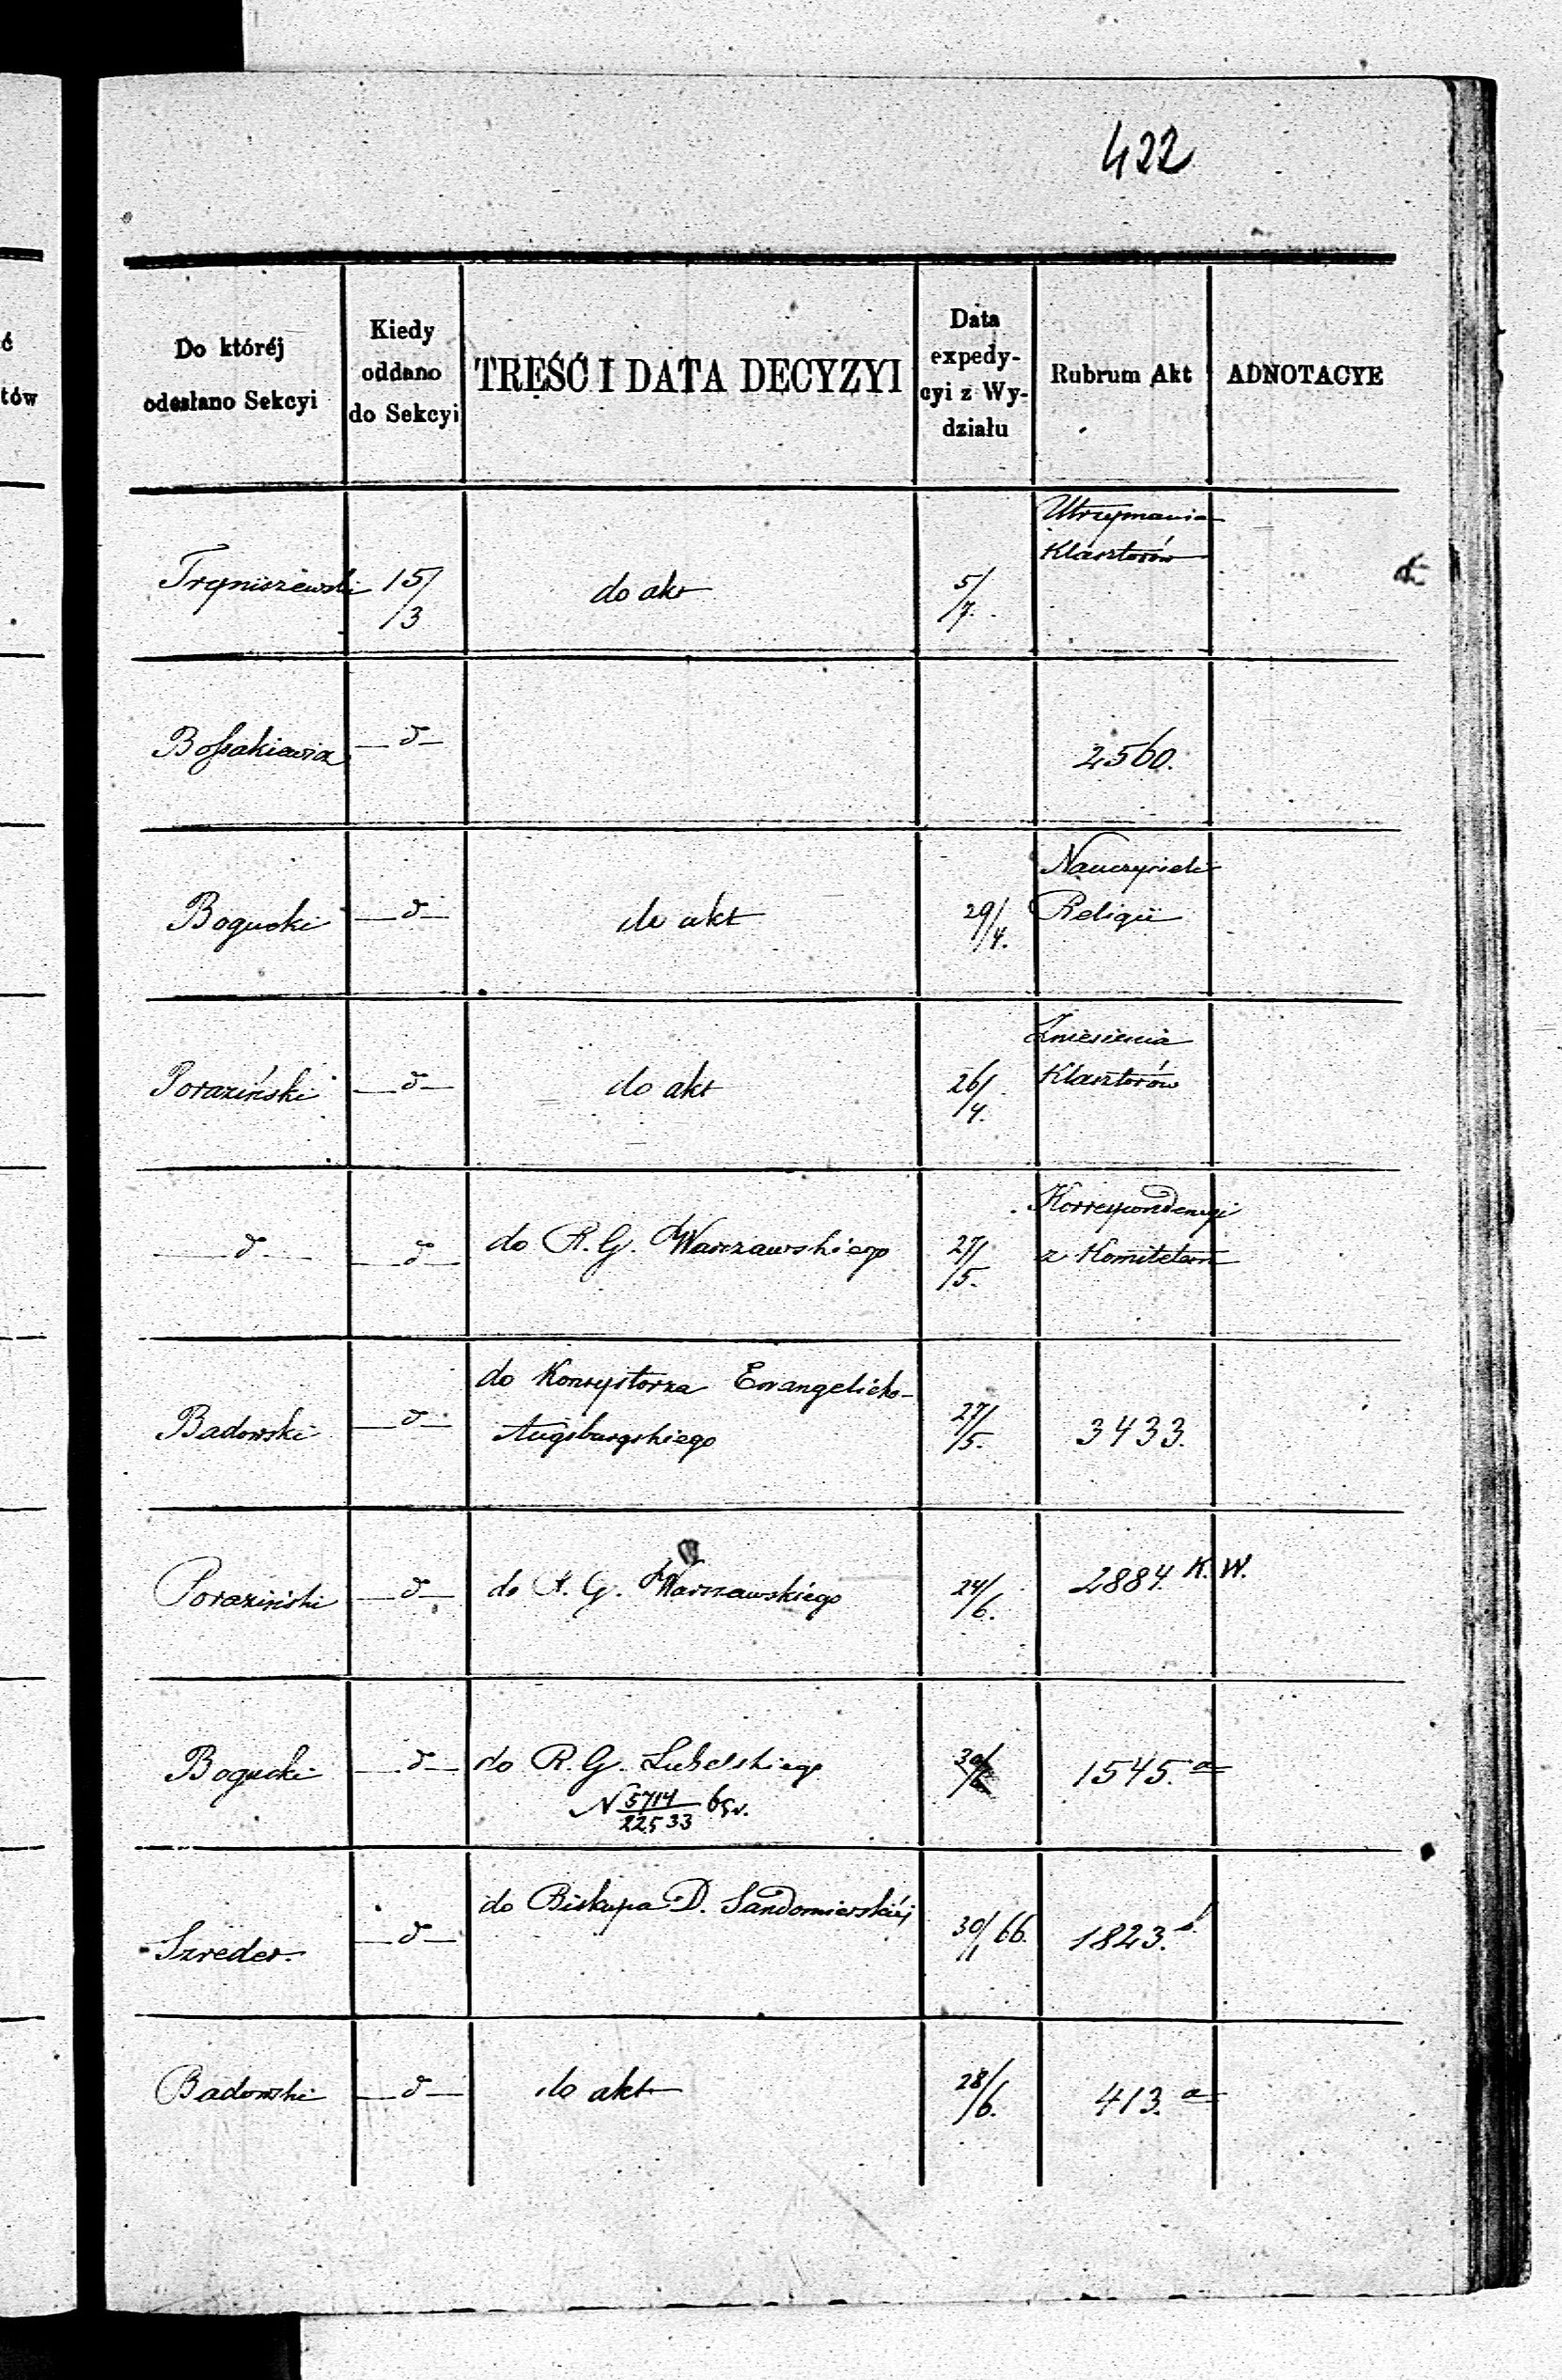 422
ć
tów
Do któréj
odesłano Sekcyi
Kiedy
oddano
do Sekcyi
TREŚĆ I DATA DECYZYI
Data
expedy-
cyi z Wy-
działu
Rubrum Akt
ADNOTACYE
Tryniszewski 15/3 do akt 5/7. Utrzymania
Klasztorów
Bossakiewicz — d — 2560.
Bogucki — d — do akt 29/4. Nauczycieli
Religii
Poraziński — d — do akt 26/4. Zniesienia
Klasztorów
— d — — d — do R. G. Warszawskiego 27/5. Korrespondencyi
z Komitetem
Badowski — d — do Konsystorza Ewangelicko-
Augsburgskiego 27/5. 3433.
Poraziński — d — do R. G. Warszawskiego 24/6. 2884. K. W.
Bogucki — d — do R. G. Lubelskiego 30/6 1545. a
N 5714/22533
Szreder — d — do Biskupa D. Sandomierskiéj 30/1 66. 1823. b.
Badowski — d — do akt 28/6. 413. a